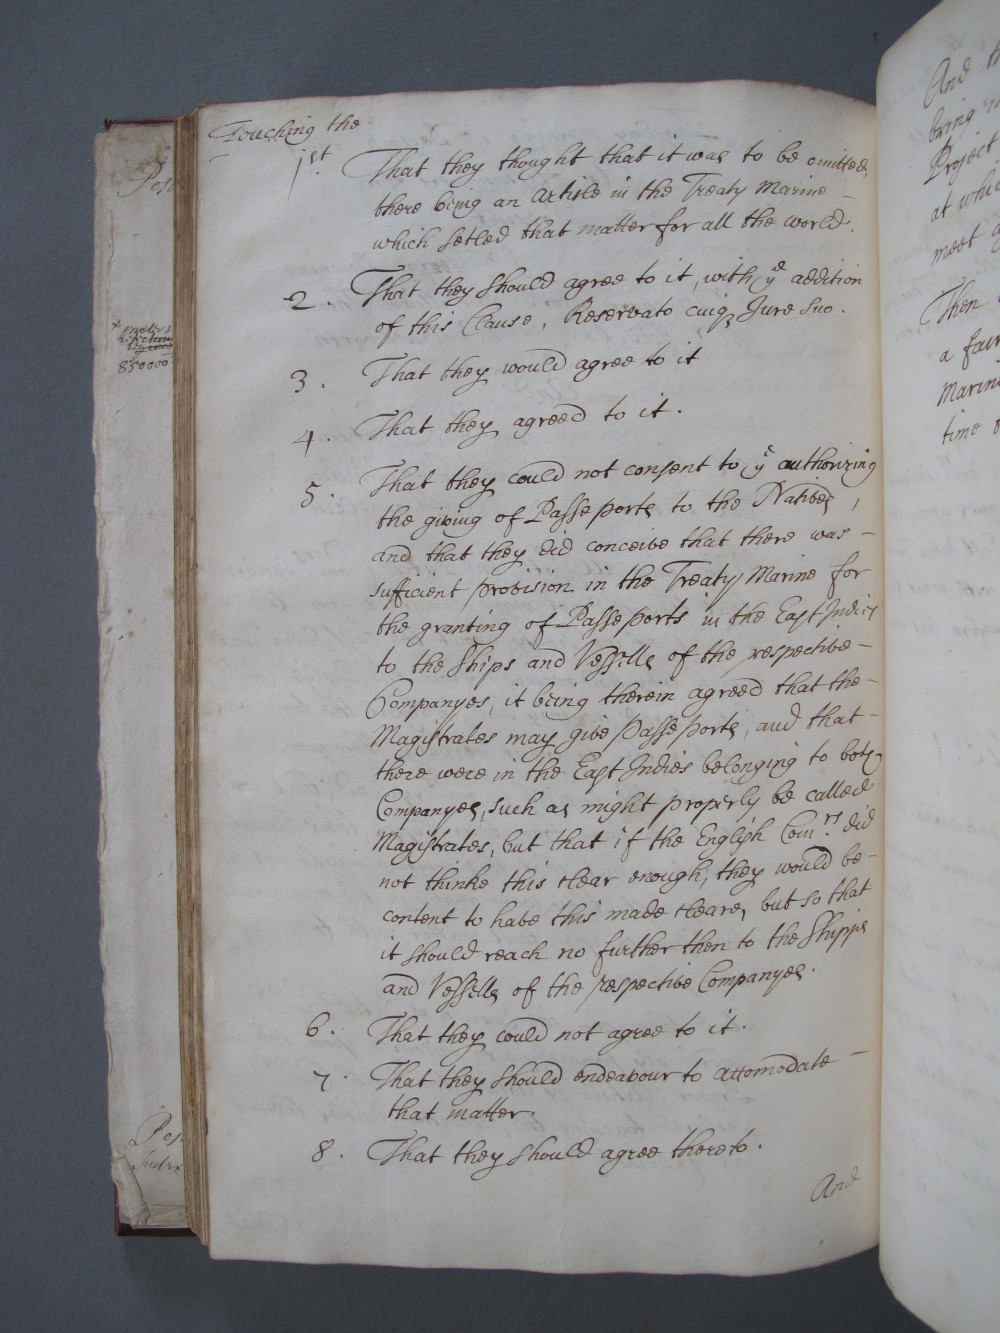 Touching the
1st That they thought that it was to be omitted,
there being an Article in the Treaty Marine
which setled that matter for all the world.
2. That they should agree to it, with ye addition
of this Clause, Reservato cuiq Jure suo.
3. That they would agree to it
4. That they agreed to it.
5. That they could not consent to ye authorizing
the giving of Passeports to the Natives,
and that they did conceive that there was
sufficient provision in the Treaty Marine for
the granting of Passeports in the East Indies
to the Ships and Vessells of the respective
Companyes, it being therein agreed that the
Magistrates may give Passeports, and that
there were in the East Indies belonging to both
Companyes, such as might properly be called
Magistrates, but that if the English Comrs. did
not thinke this clear enough, they would be
content to have this made cleare, but so that
it should reach no further then to the Shipps
and Vessells of the respective Companyes.
6. That they could not agree to it.
7. That they should endeavour to accomodate
that matter.
8. That they should agree thereto.
And
Pos
850000
Pos
And
bring
Project
at whi
meet
Then
a fair
Marin
time